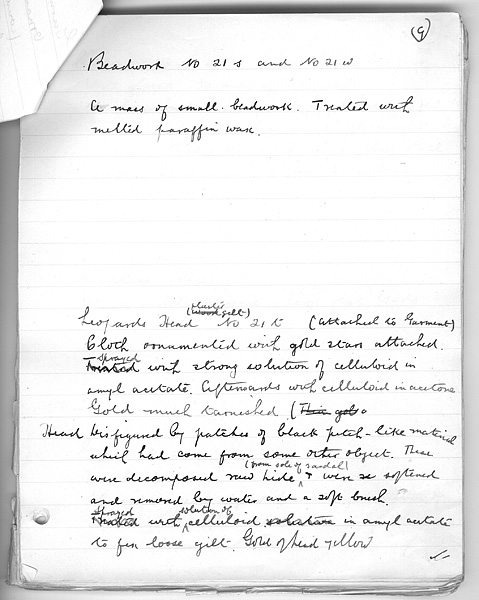 (9)
Beadwork No 21 s and No 21 w
A mass of small beadwork. Treated with
melted paraffin wax.
plaster
Leopards Head (wood gilt) No 21 t (attached to Garment)
Cloth ornamented with gold stars attached.
sprayed
Treated with strong solution of celluloid in
amyl acetate. Afterwards with celluloid in acetone
Gold much tarnished (This gold
Head disfigured by patches of black pitch-like material
which had come from some other object. These
(from sole of sandal)
were decomposed raw hide & were softened
and removed by water and a soft brush.
sprayed solution of
Treated with celluloid solution in amyl acetate
to fix loose gilt. Gold of head yellow